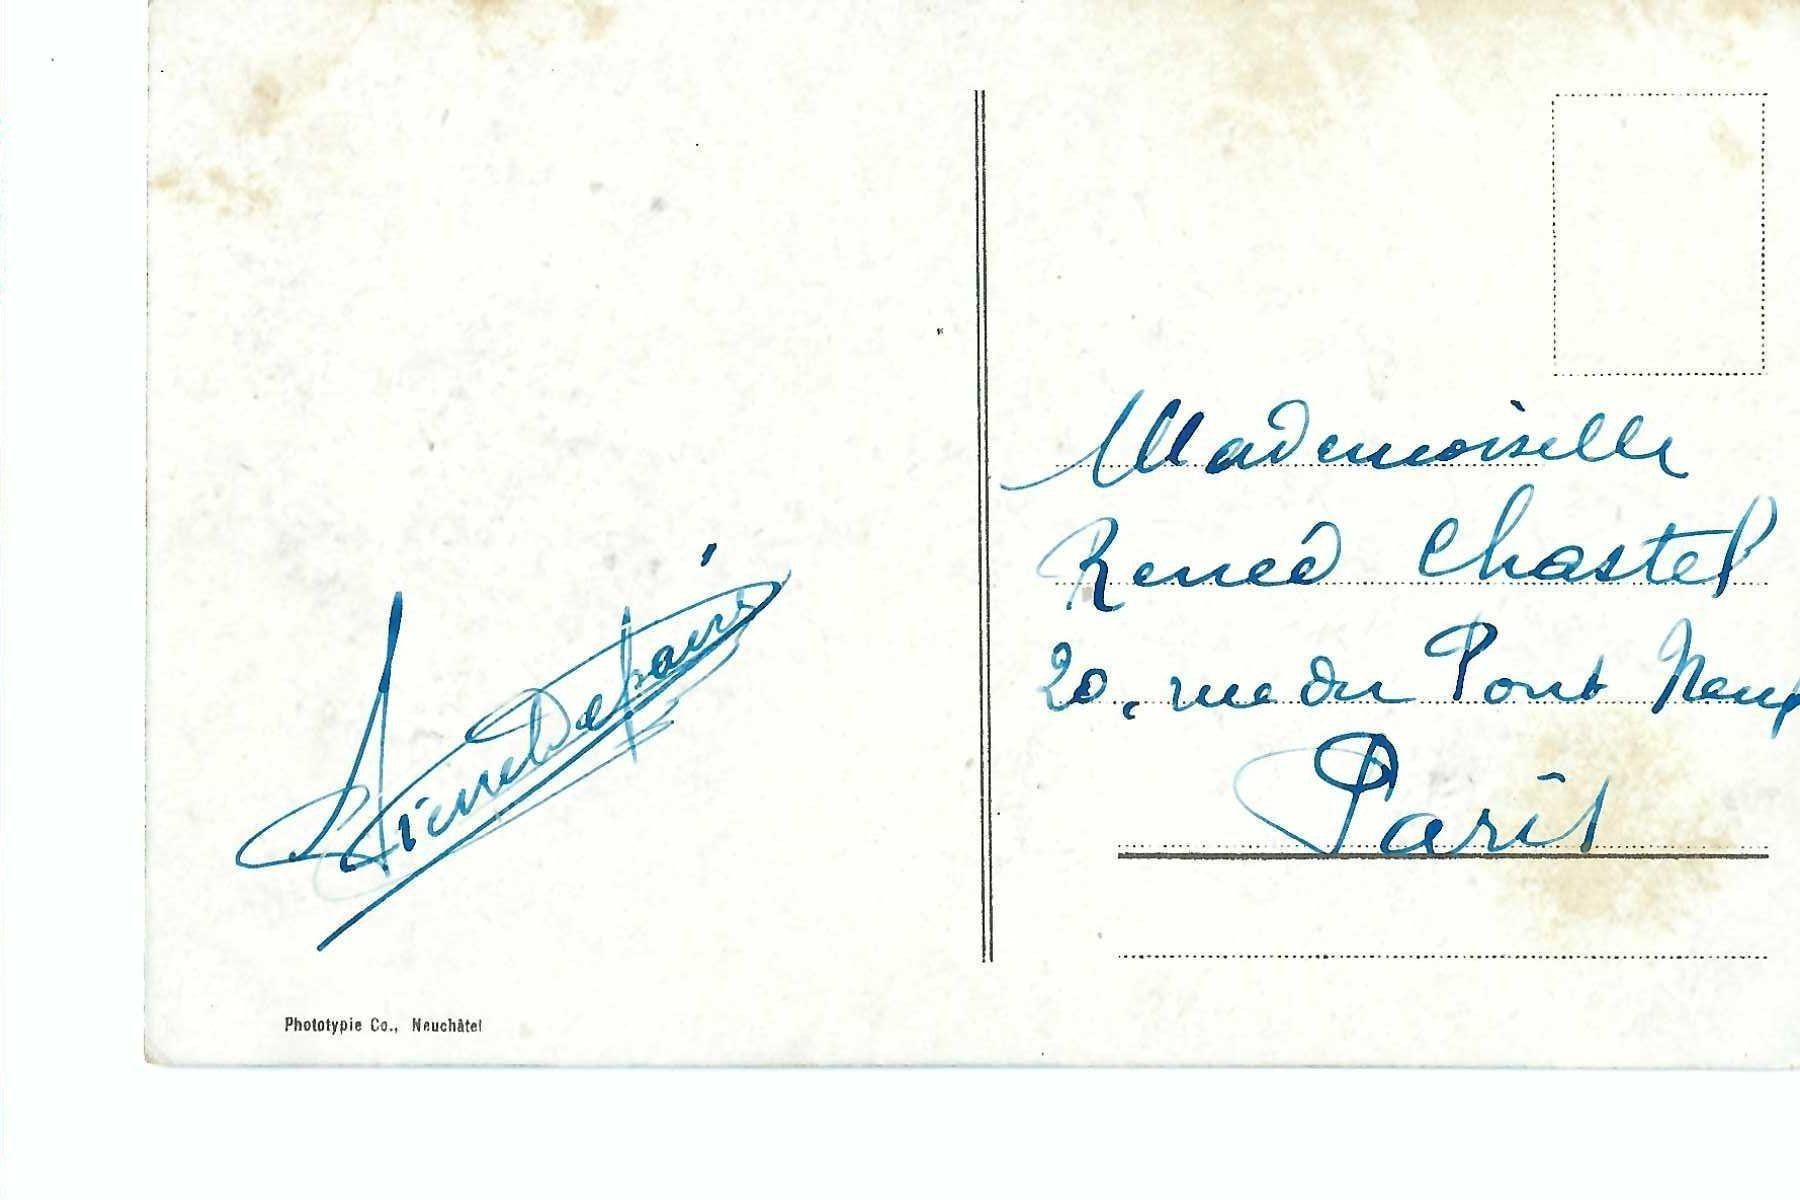 Pierre Depain
Phototypie Co., Neuchâtel
Mademoiselle
Renée Chastel
20, rue du Pont Neuf
Paris